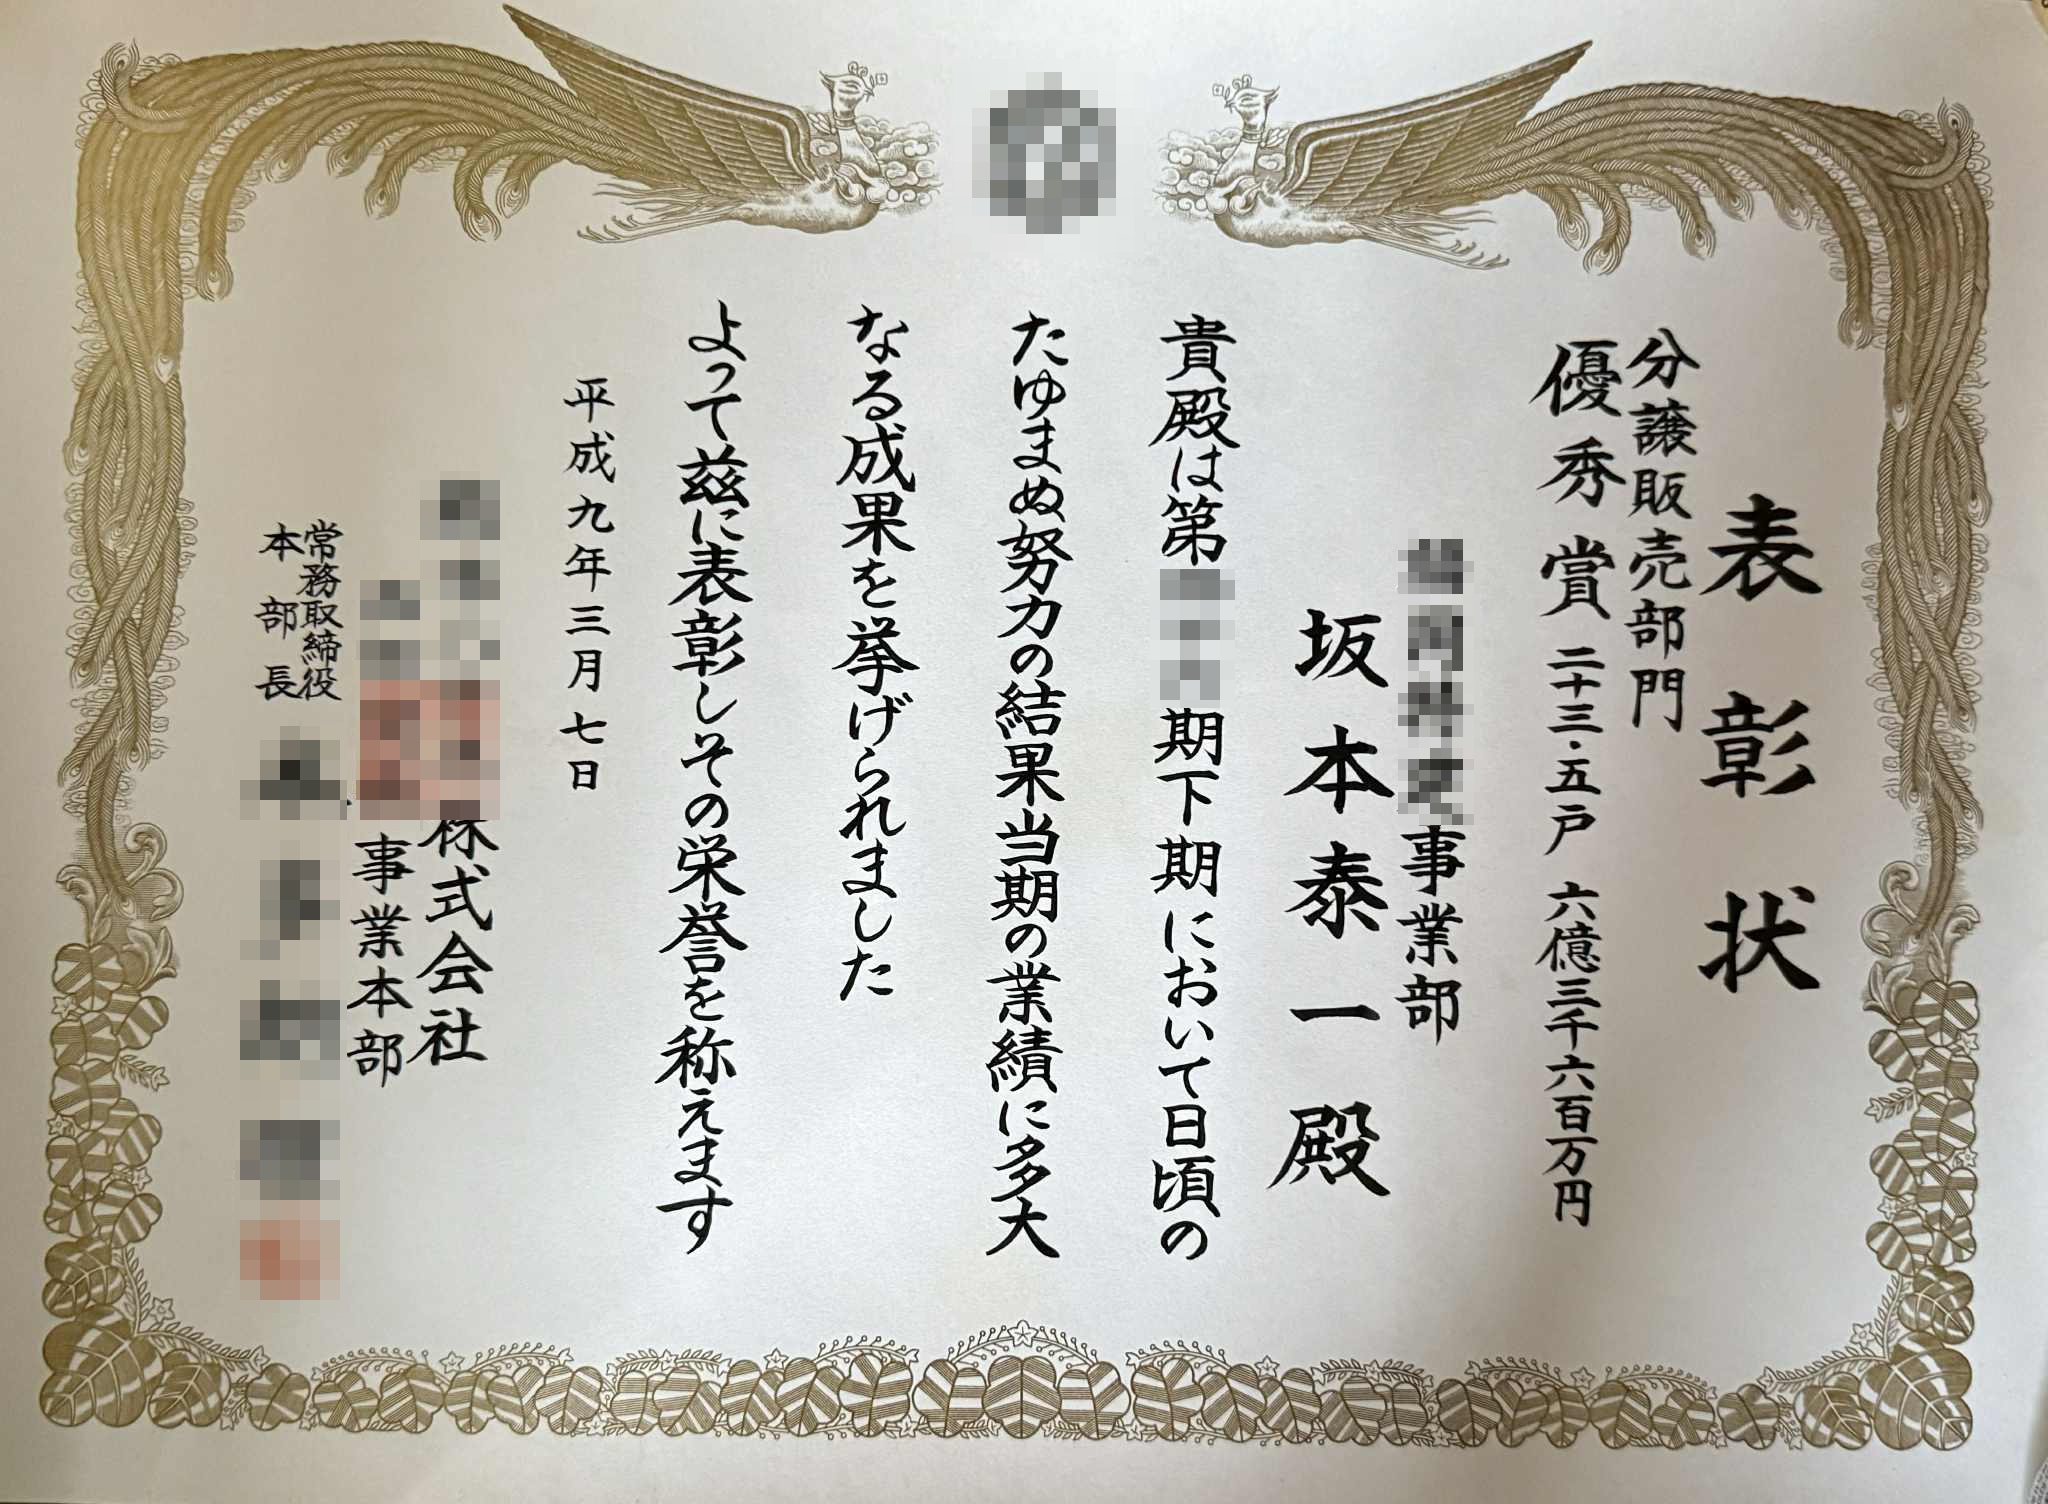 表彰状
分譲販売部門
優秀賞 二十三・五戸 六億三千六百万円
事業部
坂本泰一殿
貴殿は第 期下期において日頃の
たゆまぬ努力の結果当期の業績に多大
なる成果を挙げられました
よって茲に表彰しその栄誉を称えます
平成九年三月七日
株式会社
事業本部
常務取締役
本部長